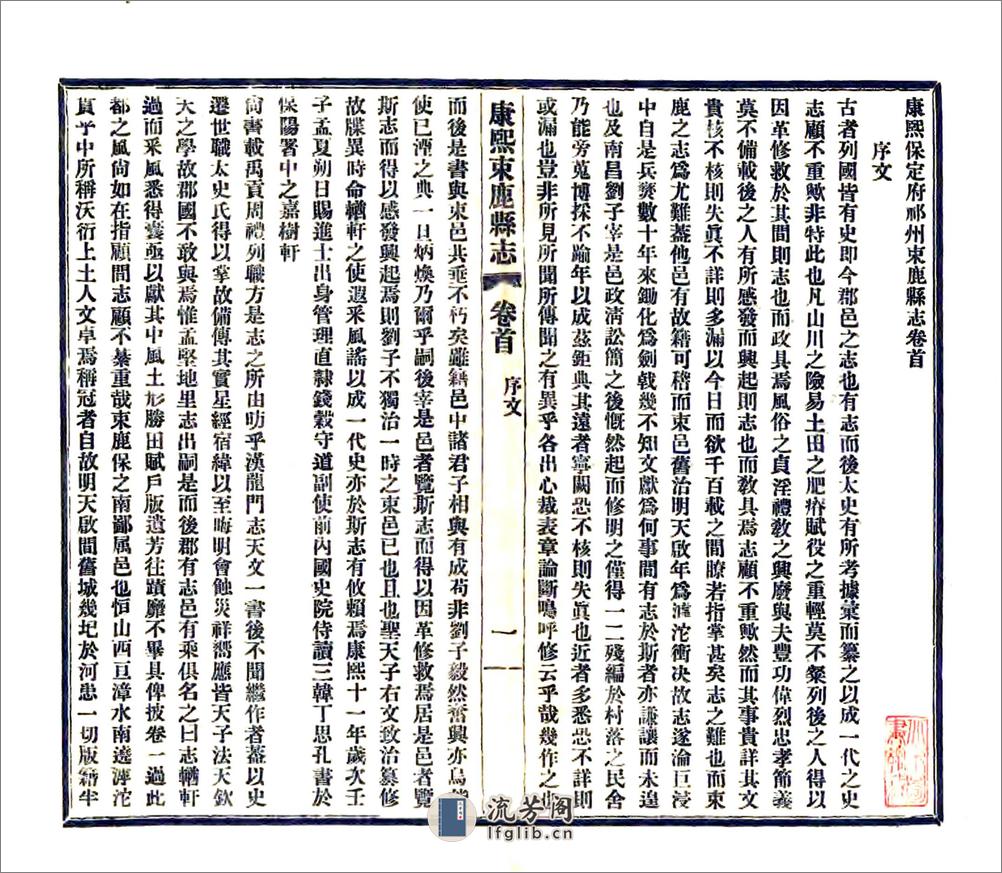 康熙保定府祁州束鹿縣志卷首
序文
古者列國皆有史即今郡邑之志也有志而後太史有所考據彙而纂之以成一代之史
志顧不重歟非特此也凡山川之險易土田之肥瘠賦役之重輕莫不粲列後之人得以
因革修救於其間則志也而政具焉風俗之貞淫禮教之興廢與夫豐功偉烈忠孝節義
莫不備載後之人有所感發而興起則志也而教具焉志顧不重歟然而其事貴詳其文
貴核不核則失眞不詳則多漏以今日而欲千百載之間瞭若指掌甚矣志之難也而束
鹿之志爲尤難蓋他邑有故籍可稽而束邑舊治明天啟年爲滹沱衝決故志遂淪巨浸
中自是兵燹數十年來鋤化爲劍戟幾不知文獻爲何事間有志於斯者亦謙讓而未遑
也及南昌劉子宰是邑政淸訟簡之後慨然起而修明之僅得一二殘編於村落之民舍
乃能旁蒐博採不踰年以成茲鉅典其遠者寧闕恐不核則失眞也近者多悉恐不詳則
或漏也豈非所見所聞所傳聞之有異乎各出心裁表章論斷嗚呼修云乎哉幾作之也
康熙束鹿縣志
卷首
序文
一
而後是書與束邑共垂不朽矣雖籍邑中諸君子相與有成苟非劉子毅然奮興亦烏能
使已湮之典一旦炳煥乃爾乎嗣後宰是邑者覽斯志而得以因革修救焉居是邑者覽
斯志而得以感發興起焉則劉子不獨治一時之束邑已也且也聖天子右文致治纂修
故牒異時命輶軒之使遐釆風謠以成一代史亦於斯志有攸賴焉康熙十一年歲次壬
子孟夏朔日賜進士出身管理直隸錢穀守道副使前內國史院侍讀三韓丁思孔書於
保陽署中之嘉樹軒
尙書載禹貢周禮列職方是志之所由昉乎漢龍門志天文一書後不聞繼作者蓋以史
遷世職太史氏得以掌故備傳其實星經宿緯以至晦明會蝕災祥嚮應皆天子法天欽
天之學故郡國不敢與焉惟孟堅地里志出嗣是而後郡有志邑有乘俱名之曰志輶軒
過而釆風悉得囊亟以獻其中風土形勝田賦戶版遺芳往蹟靡不畢具俾披卷一過此
都之風尙如在指顧間志顧不綦重哉束鹿保之南鄙属邑也恒山西亘漳水南遶滹沱
貫乎中所稱沃衍上土人文卓焉稱冠者自故明天啟間舊城幾圮於河患一切版籍半
流芳阁
lfglib.cn